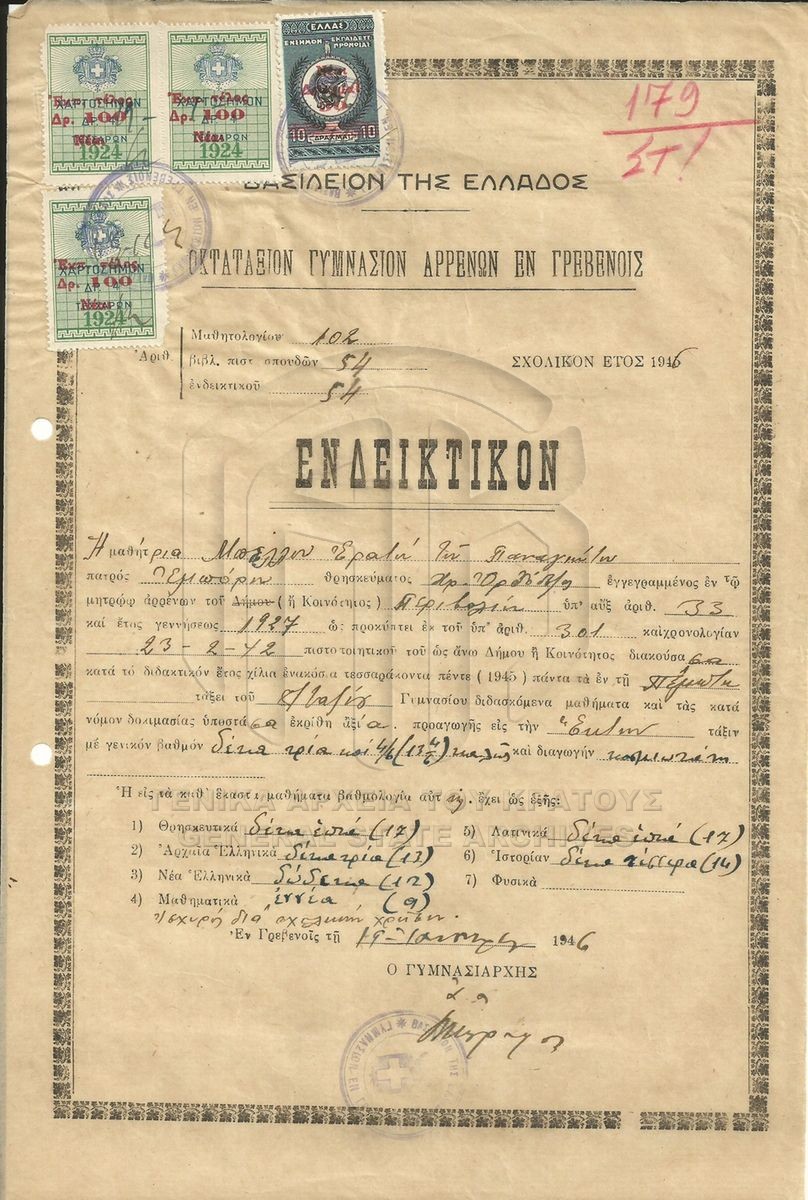 ΧΑΡΤΟΣΗΜΟΝ
Δρ. 100
Νέαι
1924
ΧΑΡΤΟΣΗΜΟΝ
Δρ. 100
Νέαι
1924
ΕΛΛΑΣ
10 ΔΡΑΧΜΑΙ 10
179
ΣΤ!
ΒΑΣΙΛΕΙΟΝ ΤΗΣ ΕΛΛΑΔΟΣ
ΧΑΡΤΟΣΗΜΟΝ
Δρ. 100
Νέαι
1924
ΟΚΤΑΤΑΞΙΟΝ ΓΥΜΝΑΣΙΟΝ ΑΡΡΕΝΩΝ ΕΝ ΓΡΕΒΕΝΟΙΣ
Μαθητολογίου 102
Ἀριθ. βιβλ. πιστ σπουδῶν 54 ΣΧΟΛΙΚΟΝ ΕΤΟΣ 1946
ἐνδεικτικοῦ 54
ΕΝΔΕΙΚΤΙΚΟΝ
Ἡ μαθήτρια Ἐρατώ τοῦ Παναγιώτου
πατρὸς Ἐμπόρου θρησκεύματος Χρ. Ὀρθόδοξος ἐγγεγραμμένος ἐν τῷ
μητρώῳ ἀρρένων τοῦ Δήμου ( ἢ Κοινότητος ) Περιβολίου ὑπ' αὔξ ἀριθ. 33
καὶ ἔτος γεννήσεως 1927 ὡς προκύπτει ἐκ τοῦ ὑπ' ἀριθ. 301 καὶχρονολογίαν
23-2-42 πιστοποιητικοῦ τοῦ ὡς ἄνω Δήμου ἢ Κοινότητος διακούσασα
κατὰ τὸ διδακτικὸν ἔτος χίλια ἐνακόσια τεσσαράκοντα πέντε ( 1945 ) πάντα τὰ ἐν τῇ Πέμπτῃ
τάξει τοῦ Ὀκταξίου Γυμνασίου διδασκόμενα μαθήματα καὶ τὰς κατὰ
νόμον δοκιμασίας ὑποστᾶσα ἐκρίθη ἀξία προαγωγῆς εἰς τὴν Ἕκτην τάξιν
μὲ γενικὸν βαθμὸν δέκα τρία καὶ 4/6 (13 4/6) καλῶς καὶ διαγωγὴν κοσμιωτάτη
Ἡ εἰς τὰ καθ' ἕκαστα μαθήματα βαθμολογία αὐτῆς. ἔχει ὡς ἑξῆς:
ΓΕΝΙΚΑ ΑΡΧΕΙΑ ΤΟΥ ΚΡΑΤΟΥΣ
GENERAL STATE ARCHIVES
1) Θρησκευτικὰ δέκα ἑπτά (17) 5) Λατινικὰ δέκα ἑπτά (17)
2) Ἀρχαῖα Ἑλληνικὰ δέκα τρία (13) 6) Ἱστορίαν δέκα τέσσερα (14)
3) Νέα Ἑλληνικὰ δώδεκα (12) 7) Φυσικὰ
4) Μαθηματικὰ ἐννέα (9)
Ἰσχύει διὰ σχολικὴν χρῆσιν.
Ἐν Γρεβενοῖς τῇ 1946
Ο ΓΥΜΝΑΣΙΑΡΧΗΣ